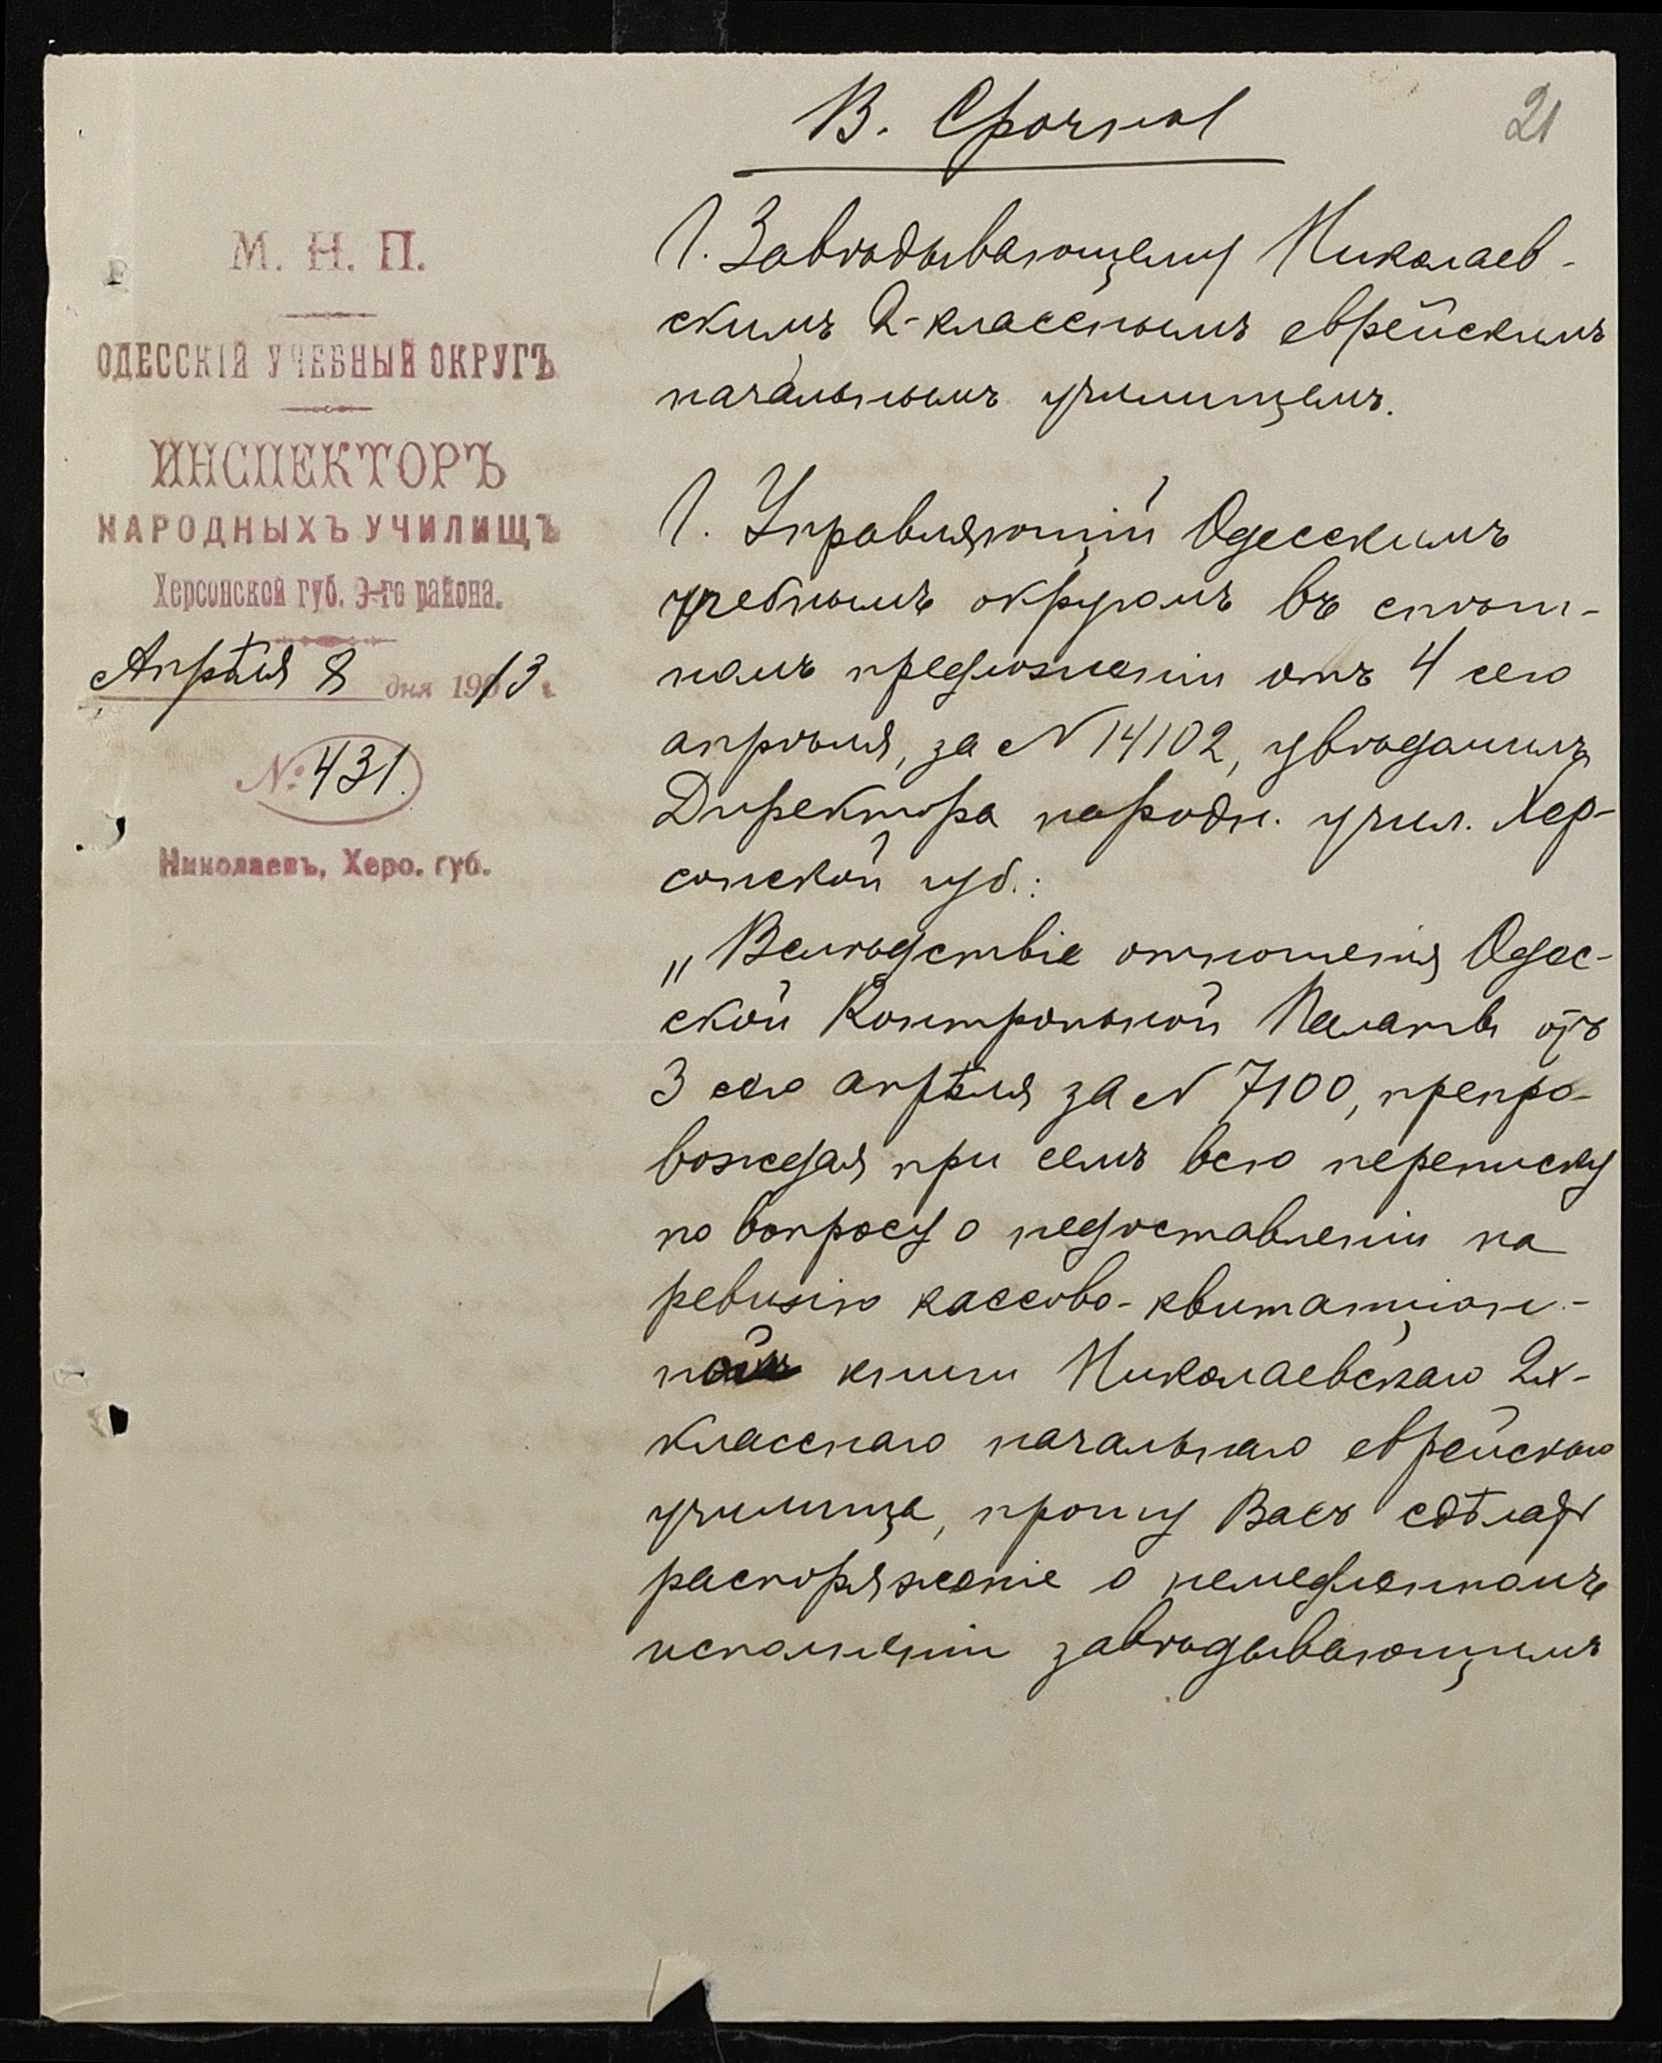 В. Срочно
21
М. Н. П.
ОДЕССКІЙ УЧЕБНЫЙ ОКРУГЪ
ИНСПЕКТОРЪ
НАРОДНЫХЪ УЧИЛИЩЪ
Херсонской губ. 3-го района.
Апрѣля 8 дня 1913 г.
№ 431.
Николаевъ, Херс. губ.
Г. Завѣдывающему Николаев-
скимъ 2-класснымъ еврейскимъ
начальнымъ училищемъ.
Г. Управляющій Одесскимъ
учебнымъ округомъ въ спѣш-
номъ предложеніи отъ 4 сего
апрѣля, за № 14102, увѣдомилъ
Директора народн. учил. Хер-
сонской губ.:
„Вслѣдствіе отношенія Одес-
ской Контрольной Палаты отъ
3 сего апрѣля за № 7100, препро-
вождая при семъ всю переписку
по вопросу о недоставленіи на
ревизію кассово-квитанціон-
ной книги Николаевскаго 2х-
класснаго начальнаго еврейскаго
училища, прошу Васъ сдѣлать
распоряженіе о немедленномъ
исполненіи завѣдывающимъ